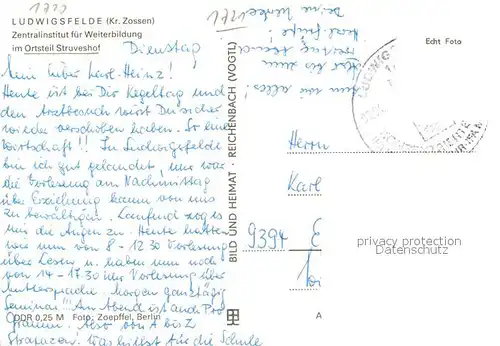 1721
1721
LUDWIGSFELDE (Kr. Zossen)
Zentralinstitut für Weiterbildung
im Ortsteil Struveshof
Dienstag
Mein lieber Karl-Heinz!
Heute ist bei Dir Kegeltag und
den Arztbesuch wirst Du sicher
wieder verschoben haben. So eine
Wirtschaft!! In Ludwigsfelde
bin ich gut gelandet, nur war
die Vorlesung am Nachmittag
über Erziehung kaum von uns
zu bewältigen. Laufend zog es
mir die Augen zu. Heute hatten
wir nun von 8 - 12.30 Vorlesung
über Lesen u. haben nun noch
von 14 - 17.30 Uhr Vorlesung über
Muttersprache. Morgen ganztägig
Seminar!!! Am Abend ist auch Pro
gramm. Also von A bis Z
Strapazen! Was hilft's für die Schule
DDR 0,25 M Foto: Zoepffel, Berlin
BILD UND HEIMAT · REICHENBACH (VOGTL)
nun wir alles!
Echt Foto
LUDWIGS
Herrn
Karl
9394 E
privacy protection
Datenschutz
A